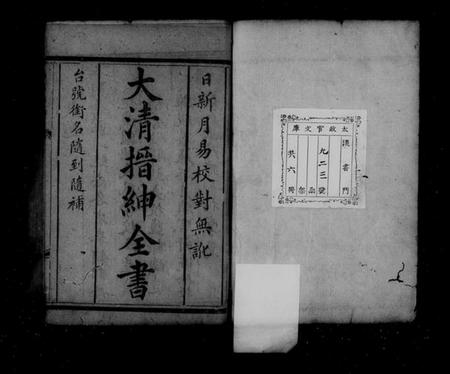 太政官文庫
漢書門
九二三號
函
部
共六冊
日新月易校對無訛
大清搢紳全書
台號銜名隨到隨補